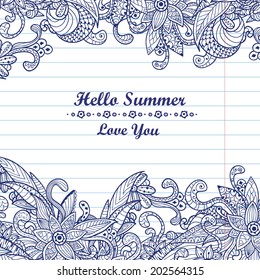 Hello Summer
Love You
shutterstock.com · 202564315